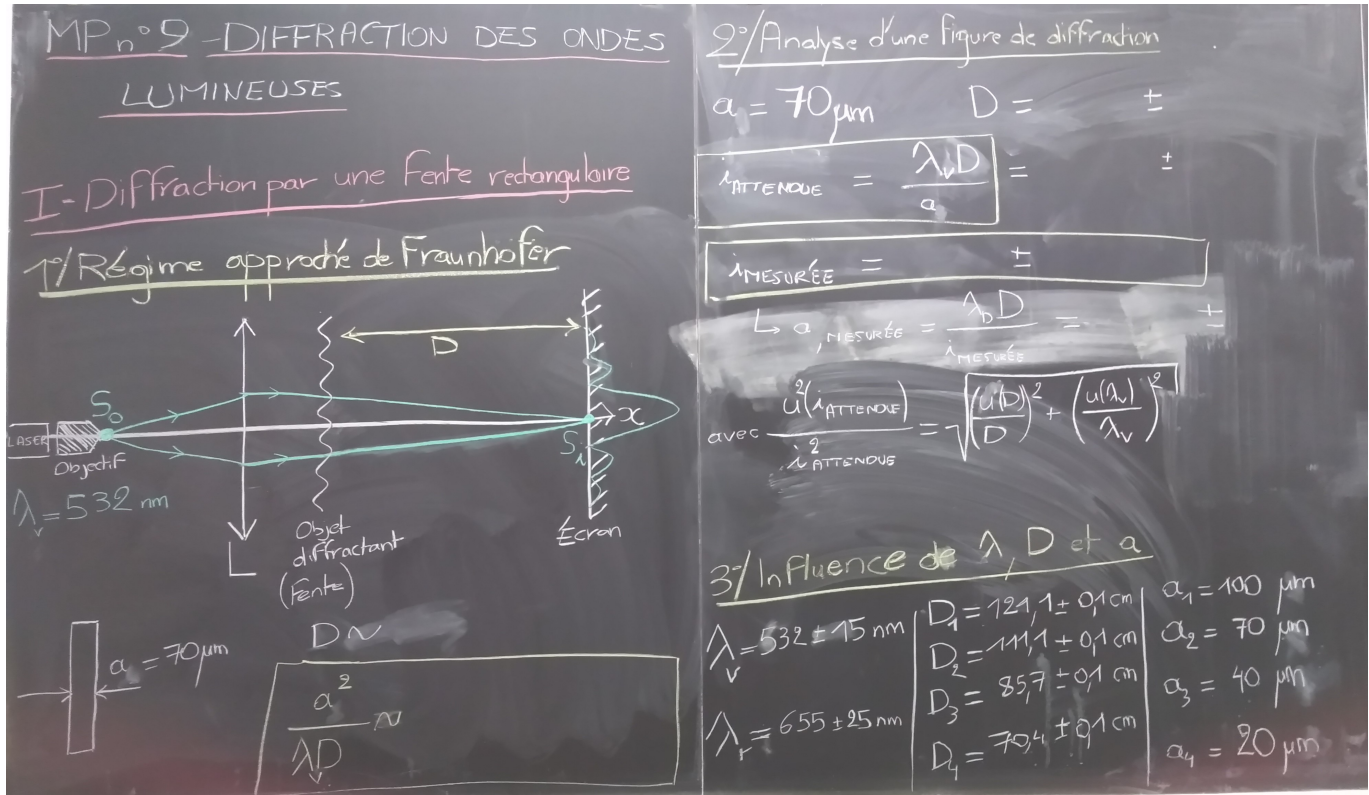 MP n°9 - DIFFRACTION DES ONDES
LUMINEUSES
I - Diffraction par une fente rectangulaire
1°/ Régime approché de Fraunhöfer
D
S₀
LASER
Objectif
λᵥ = 532 nm
L
Objet
diffractant
(Fente)
Sᵢ
x
Écran
a = 70 μm
D ~
a² / λᵥD ~
2°/ Analyse d'une figure de diffraction
a = 70 μm D = ±
i ATTENDUE = λᵥD / a = ±
i MESURÉE = ±
↳ a, MESURÉE = λ_D D / i MESURÉE = ±
avec u²(i ATTENDUE) / i² ATTENDUE = √((u(D)/D)² + (u(λᵥ)/λᵥ)²)
3°/ Influence de λ, D et a
λᵥ = 532 ± 15 nm
λᵣ = 655 ± 25 nm
D₁ = 121,1 ± 0,1 cm
D₂ = 111,1 ± 0,1 cm
D₃ = 85,7 ± 0,1 cm
D₄ = 70,4 ± 0,1 cm
a₁ = 100 μm
a₂ = 70 μm
a₃ = 40 μm
a₄ = 20 μm